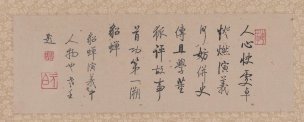 人心快處卓
臍燃演義
何妨併史
傳且學董
狐評故事
首功第一溯
貂蟬
貂蟬演義中
人物也
題